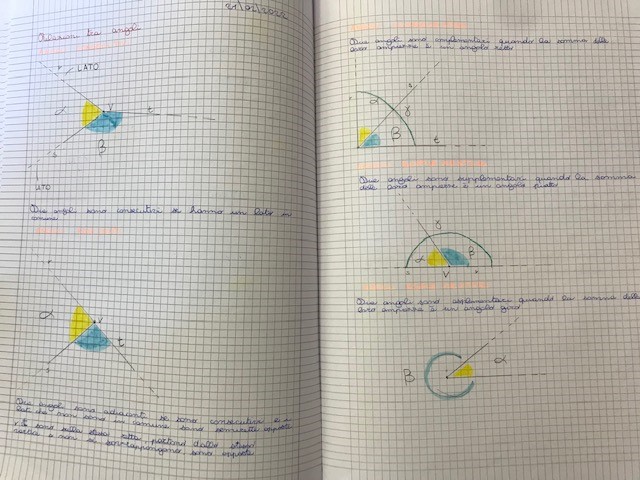 21/02/2022
Relazioni tra angoli
r
LATO
α
V
t
β
s
LATO
Due angoli sono consecutivi se hanno un lato in
comune
r
α
V
t
s
Due angoli sono adiacenti se sono consecutivi e i
lati che non sono in comune sono semirette opposte
sulla stessa retta, partono dallo stesso
e non si sovrappongono sono opposte
Due angoli sono complementari quando la somma delle
loro ampiezze è un angolo retto
r
α
s
γ
β
t
Due angoli sono supplementari quando la somma
delle loro ampiezze è un angolo piatto
γ
α
β
V
Due angoli sono esplementari quando la somma delle
loro ampiezze è un angolo giro
β
α